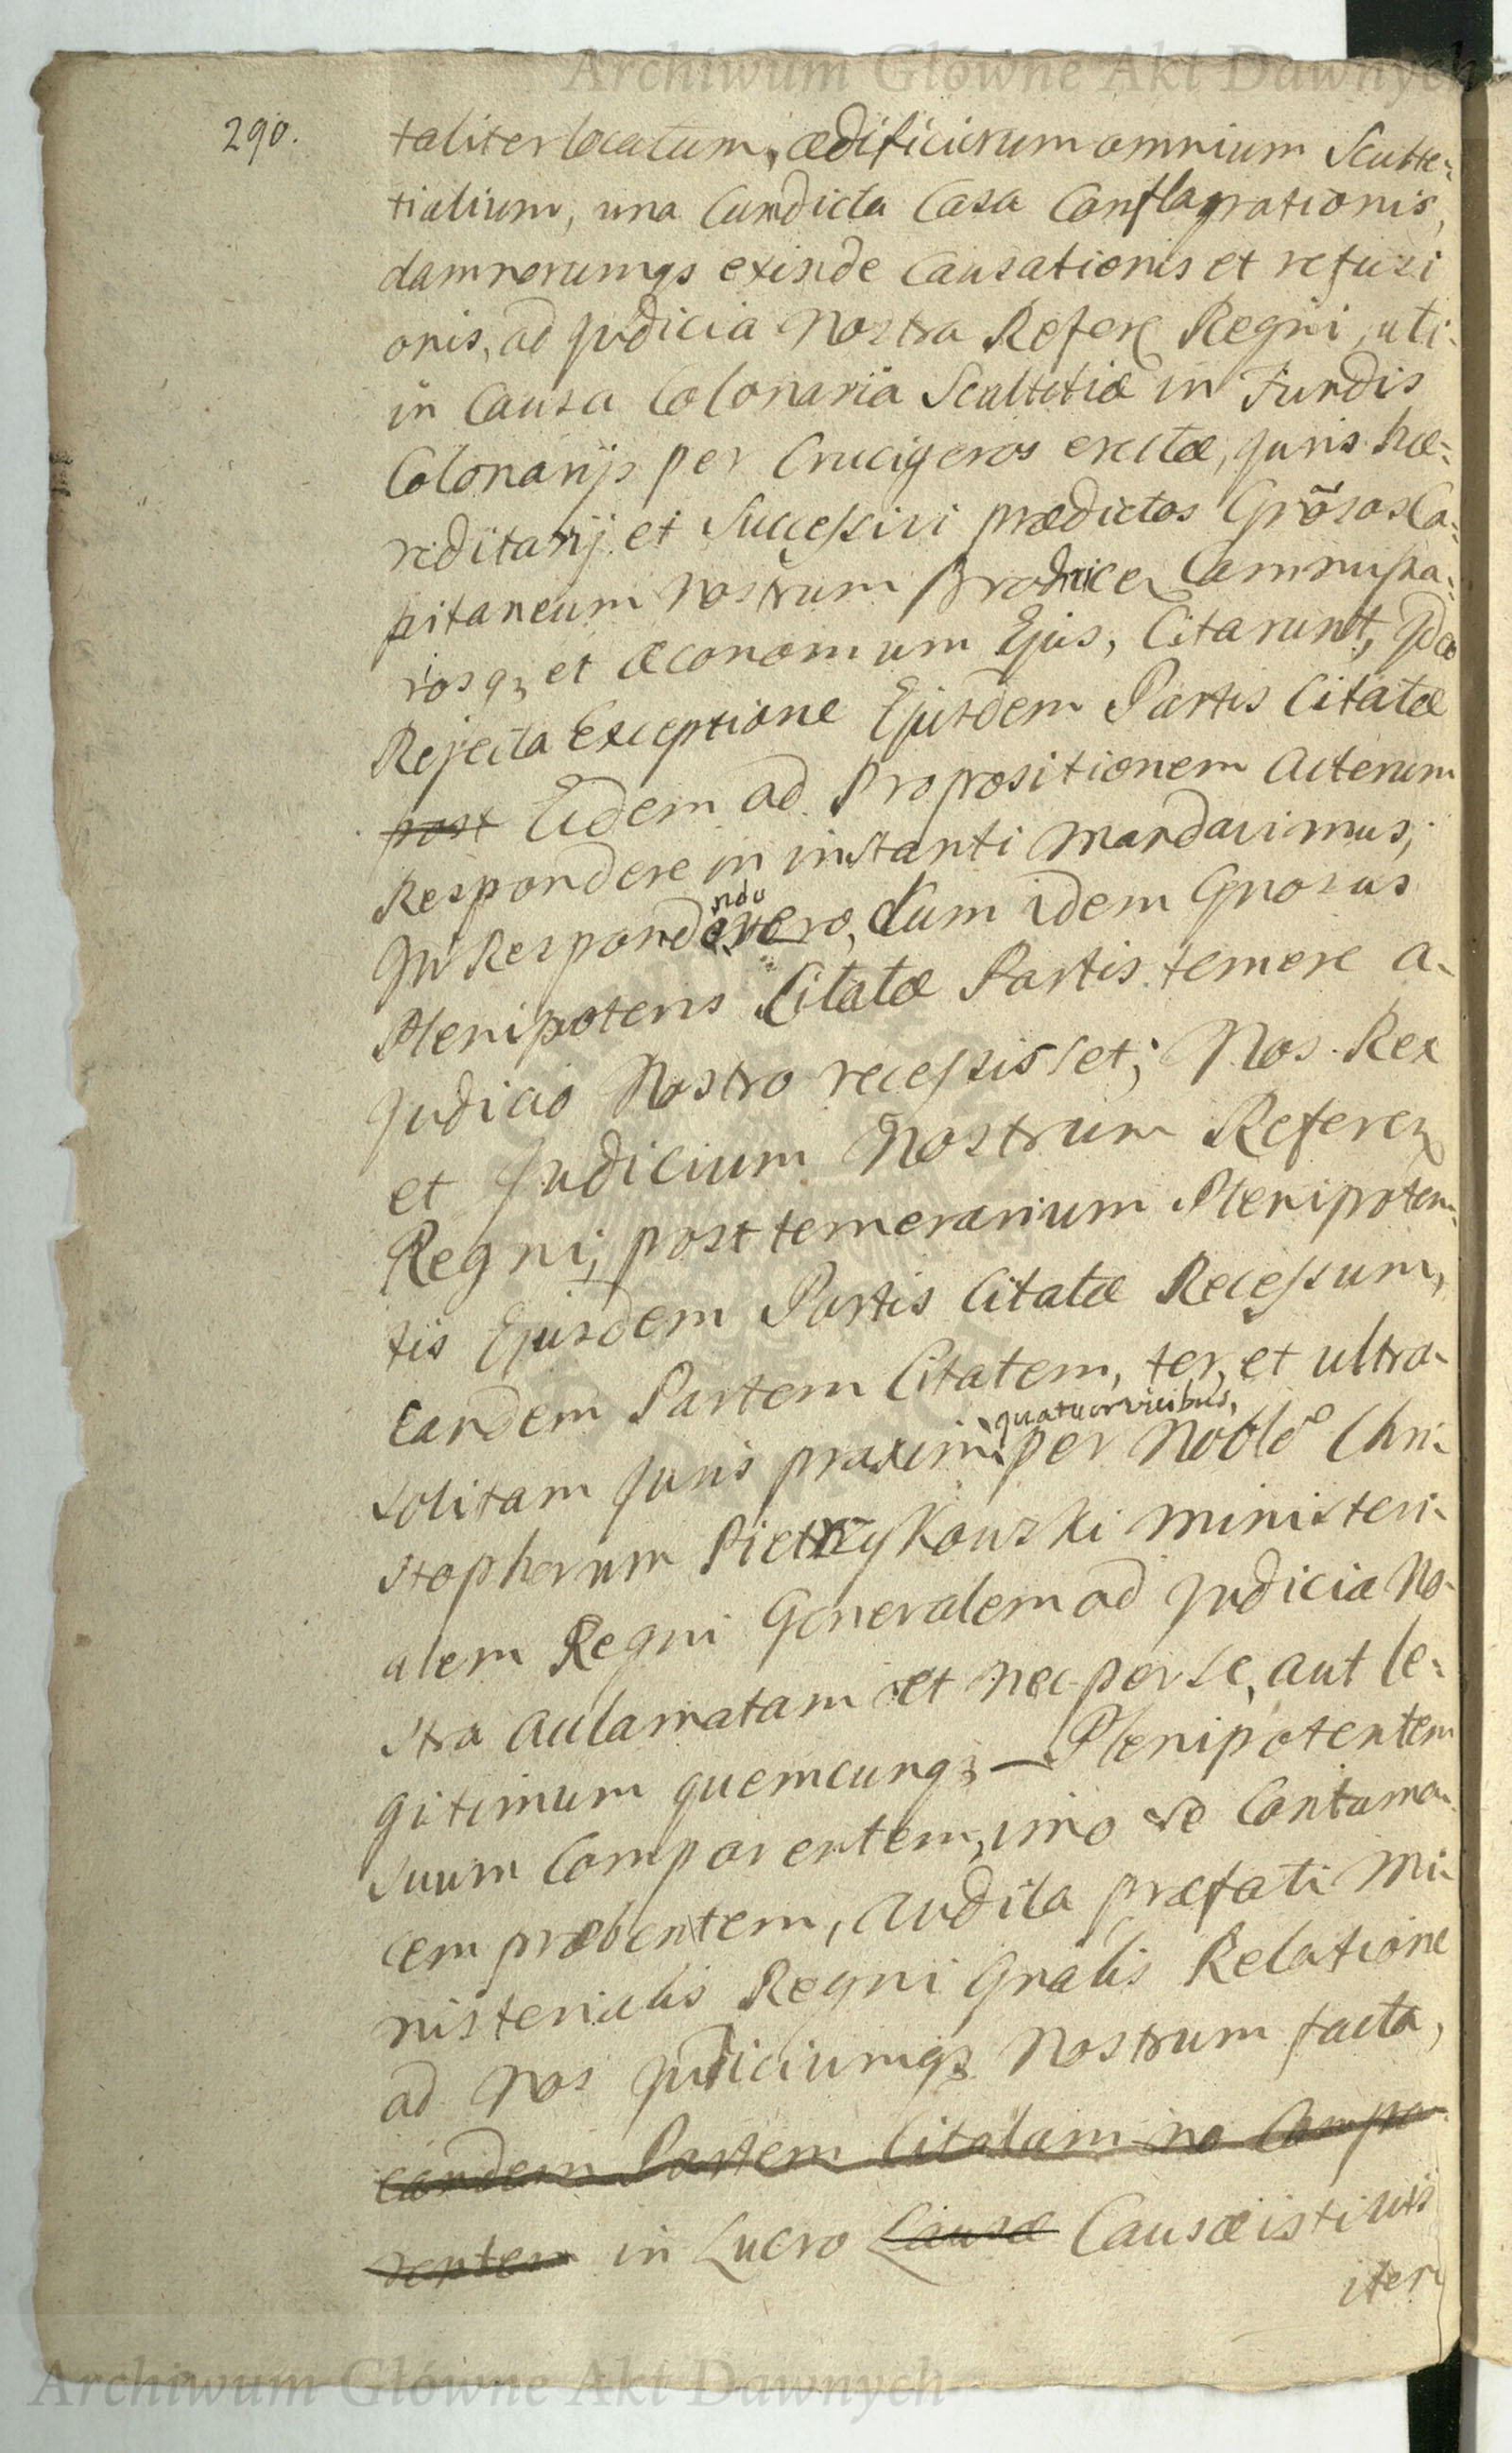 Archiwum Główne Akt Dawnych
290.
taliter locatum, ædificiorum omnium Sculte-
tialium, una Cum dicta Casa Conflagrationis,
damnorumqs exinde Causationis et refusi
onis, ad Judicia Nostra Referz Regni, uti
in Causa Colonaria Scultetiæ in Fundis
Colonarijs per Crucigeros erectæ, Juris hæ-
reditarij et Successivi prædictos Grosos Ca-
pitaneum Nostrum Brodnicen Commissa-
riosqz et œconomum Ejus, Citarunt, Ideo
Rejecta Exceptione Ejusdem Partis Citatæ
post Eidem ad Propositionem Actorum
Respondere in instanti Mandavimus;
In Respondendo vero, dum idem Gnosus
Plenipotens Citatæ Partis temere a
Judicio Nostro recessisset; Nos Rex
et Judicium Nostrum Referen
Regni, post temerarium Plenipoten-
tis Ejusdem Partis Citatæ Recessum,
Eandem Partem Citatem, ter, et ultra
solitam Juris praxim quatuorvicibus, per Noble Chri-
stophorum Pietrzykowski Ministeri-
alem Regni Generalem ad Judicia No-
stra Aclamatam et nec per se, aut le-
gitimum quemcunqz Plenipotentem
suum Comparentem, imo se Contuma-
cem præbentem, Audita præfati Mi-
nisterialis Regni Gnalis Relatione
ad Nos Judiciumqz Nostrum facta,
eandem Partem Citatam no Compa
rentem in Lucro Causæ Causæ istius
iter
Archiwum Główne Akt Dawnych